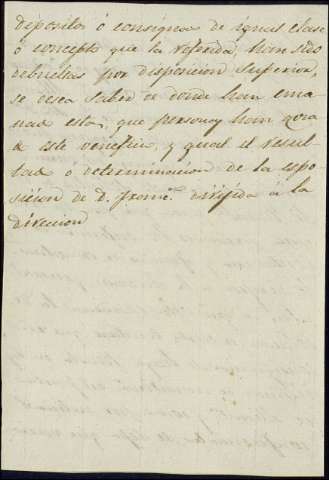 depositos ó consignas de igual clase
ó concepto que la referida, han sido
debueltas por disposicion Superior,
se desea saber de donde han ema
nado esta, que personas han goza
do este veneficio, y qual el resul
tado ó determinacion de la espo
sicion de D. Franco. dirijida á la
direccion